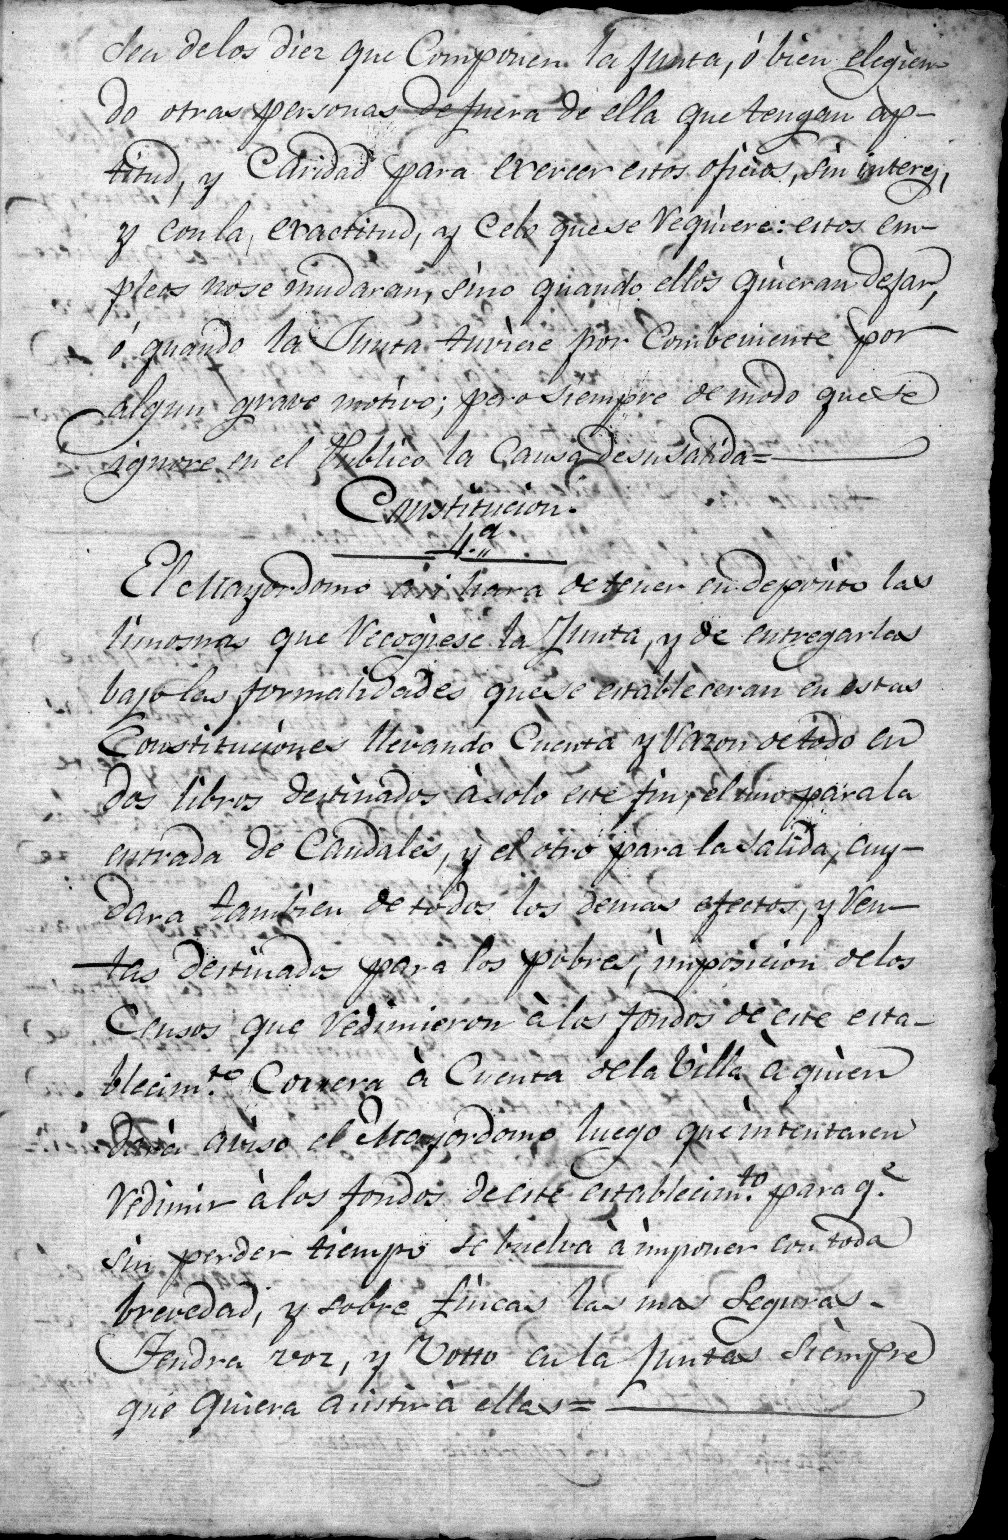 sea de los diez que Componen la Junta, ó bien eligien-
do otras personas de fuera de ella que tengan ap-
titud, y Caridad para exercer estos oficios, sin interes,
y con la exactitud, y Celo que se requiere: estos em-
pleos no se mudaran, sino quando ellos quieran dejar,
ó quando la Junta tuviere por Combeniente por
algun grave motivo; pero siempre de modo que se
ignore en el Publico la Causa de su salida=
Constitucion
4.ª
El Mayordomo hara de tener en deposito las
limosnas que recogiese la Junta, y de entregarlas
bajo las formalidades que se estableceran en estas
Constituciones llevando Cuenta y razon de todo en
dos libros destinados à solo este fin, el uno para la
entrada de Caudales, y el otro para la salida, cuy-
dara tambien de todos los demas efectos, y Ren-
tas destinadas para los pobres, imposicion de los
Censos que redimieron à los fondos de este esta-
blecim.to Correra à Cuenta de la Villa à quien
darà aviso el Mayordomo luego que intentaren
redimir à los fondos de este establecim.to para q.e
sin perder tiempo se buelva à imponer con toda
brevedad, y sobre fincas las mas seguras.
Tendra voz, y Votto en la Juntas siempre
que quiera asistir à ellas=